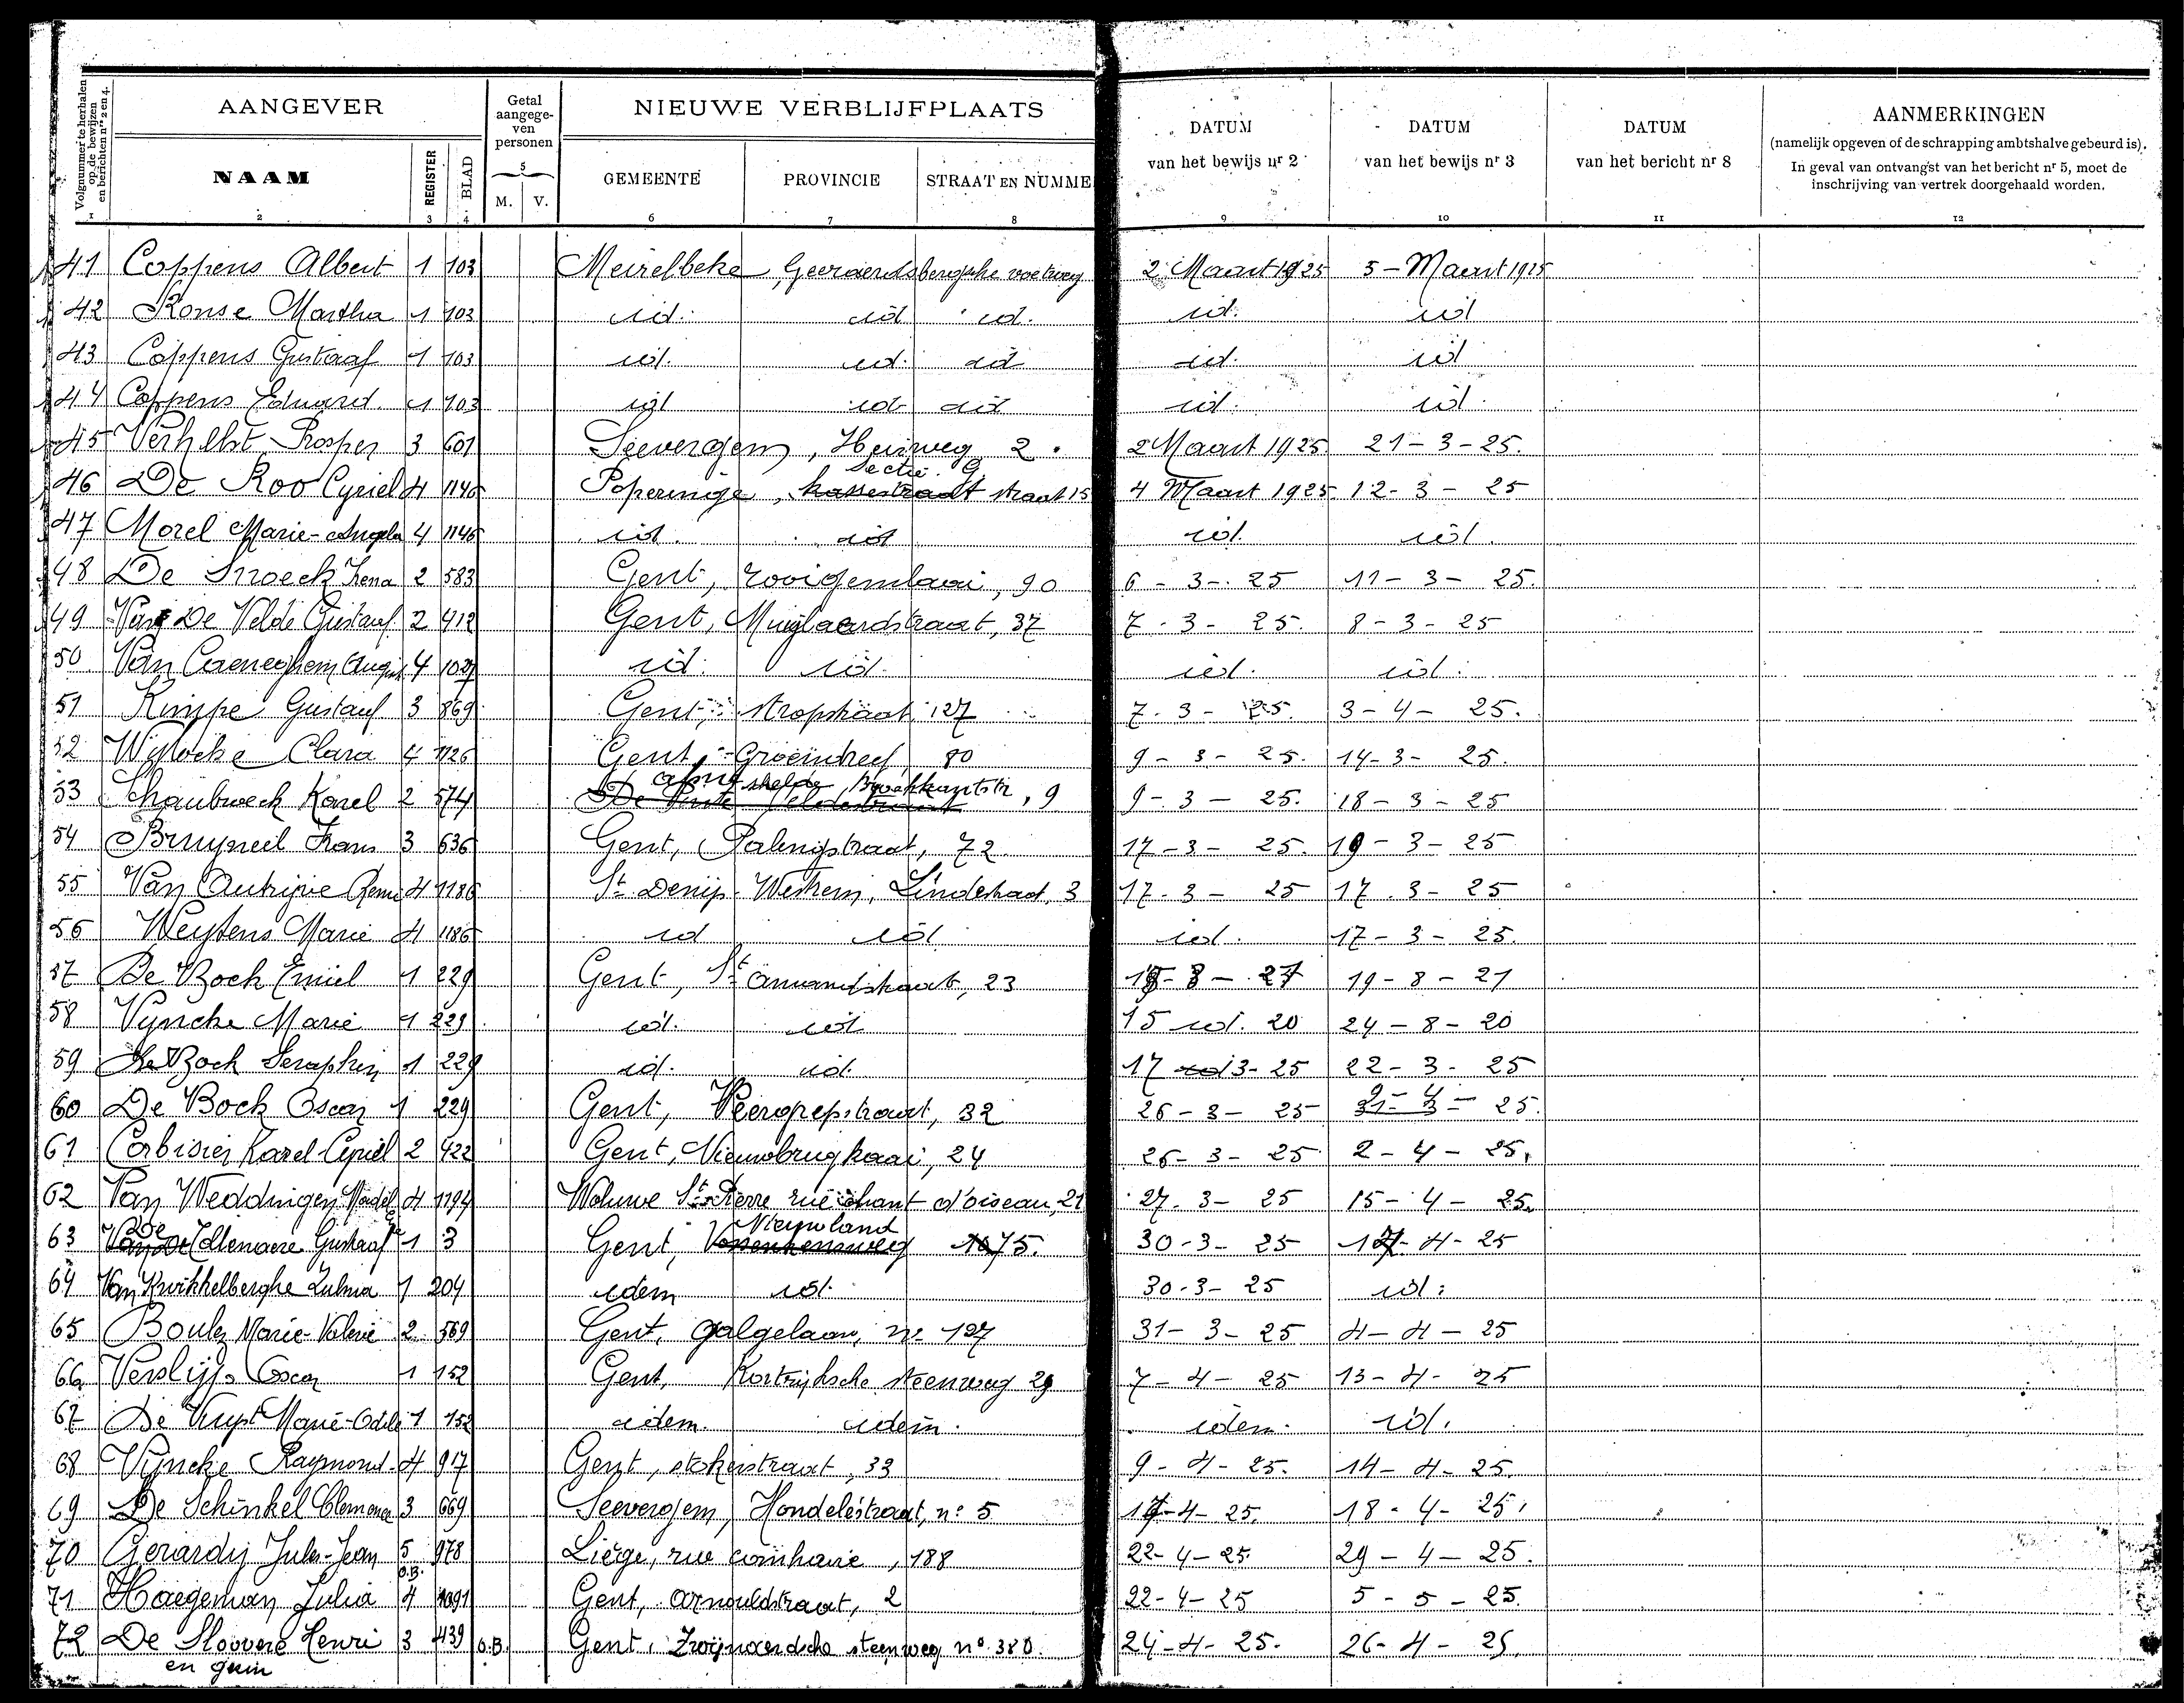 Volgnummer te herhalen op de bewijzen en berichten nrs 2 en 4.
AANGEVER
NAAM
REGISTER
BLAD
Getal aangege-ven personen
5
M. V.
NIEUWE VERBLIJFPLAATS
GEMEENTE PROVINCIE STRAAT EN NUMME
DATUM van het bewijs nr 2
DATUM van het bewijs nr 3
DATUM van het bericht nr 8
AANMERKINGEN
(namelijk opgeven of de schrapping ambtshalve gebeurd is).
In geval van ontvangst van het bericht nr 5, moet de
inschrijving van vertrek doorgehaald worden.
1 2 3 4 6 7 8 9 10 11 12
41 Coppens Albert 1 103 Meirelbeke, Geeraerdsbergsche voetweg 2 Maart 1925 5 - Maart 1925
42 Ronse Martha 1 103 id. id id. id. id
43 Coppens Gustaaf 1 103 id. id. id id. id
44 Coppens Eduard 1 103 id id id id. id.
45 Verhelst Prosper 3 601 Seevergem, Heirweg 2. 2 Maart 1925. 21-3-25.
Sectie G
46 De Roo Cyriel 4 1146 Poperinge, straat 15 4 Maart 1925. 12-3-25
47 Morel Marie-Angela 4 1146 id. id id. id.
48 De Snoeck Irena 2 583 Gent, rooigemlaai, 90 6-3-25 11-3-25.
49 Van De Velde Gustaaf 2 412 Gent, Muylaerdstraat, 37 7-3-25. 8-3-25
50 Van Caeneghem 4 id. id. id. id.
51 Kimpe Gustaaf 3 869 Gent, stropstraat 127 7-3-25. 3-4-25.
52 Clara 4 1126 Gent, Groeindreef, 80 9-3-25. 14-3-25.
53 Karel 2 574 shelde Broekkantstr, 9 9-3-25. 18-3-25
54 Bruyneel Frans 3 636 Gent, 72 17-3-25. 19-3-25
55 Van Autrijve Remi 4 1186 St Denijs-Westrem, Lindestraat, 3 17-3-25 17-3-25
56 Weytens Marie 4 1186 id id id. 17-3-25.
57 De Bock Emiel 1 229 Gent, St Amandstraat, 23 19-8-21
58 Vyncke Marie 1 229 id. id 15 id. 20 24-8-20
59 De Bock Seraphin 1 229 id. id. 17 3-25 22-3-25
60 De Bock Oscar 1 229 Gent, Peergrepstraat, 32 26-3-25 2-4-25.
61 Corbisier Karel-Cyriel 2 422 Gent, Nieuwbrugkaai, 24 26-3-25 2-4-25.
62 Van Weddingen 4 1194 Woluwe St Pierre rue chant d'oiseau, 21 27-3-25 15-4-25.
De Nieuwland
63 Gustaaf 1 3 Gent, 75. 30-3-25 17-4-25
64 Van Kwikkelberghe Zulma 1 204 idem id. 30-3-25 id.
65 Boulez Marie-Valerie 2 569 Gent, galgelaan, no 127 31-3-25 4-4-25
66 Verslijp Oscar 1 152 Gent, Kortrijksche steenweg 29 7-4-25 13-4-25
67 De Vuyst Marie-Odile 1 152 idem. idem. idem. id.
68 Vyncke Raymond 4 917 Gent, stokerstraat, 33 9-4-25. 14-4-25.
69 De Schinkel Clemence 3 669 Seevergem, Hondelestraat, no 5 17-4-25. 18-4-25.
70 Gerardy Jules-Jean 5 978 Liège, rue comhaire, 188 22-4-25. 29-4-25.
O.B.
71 Haegeman Julia 4 1091 Gent, Arnouldstraat, 2 22-4-25 5-5-25.
72 De Sloovere Henri 3 439 O.B. Gent, Zwijnaerdsche steenweg no 380. 24-4-25. 26-4-25.
en gezin